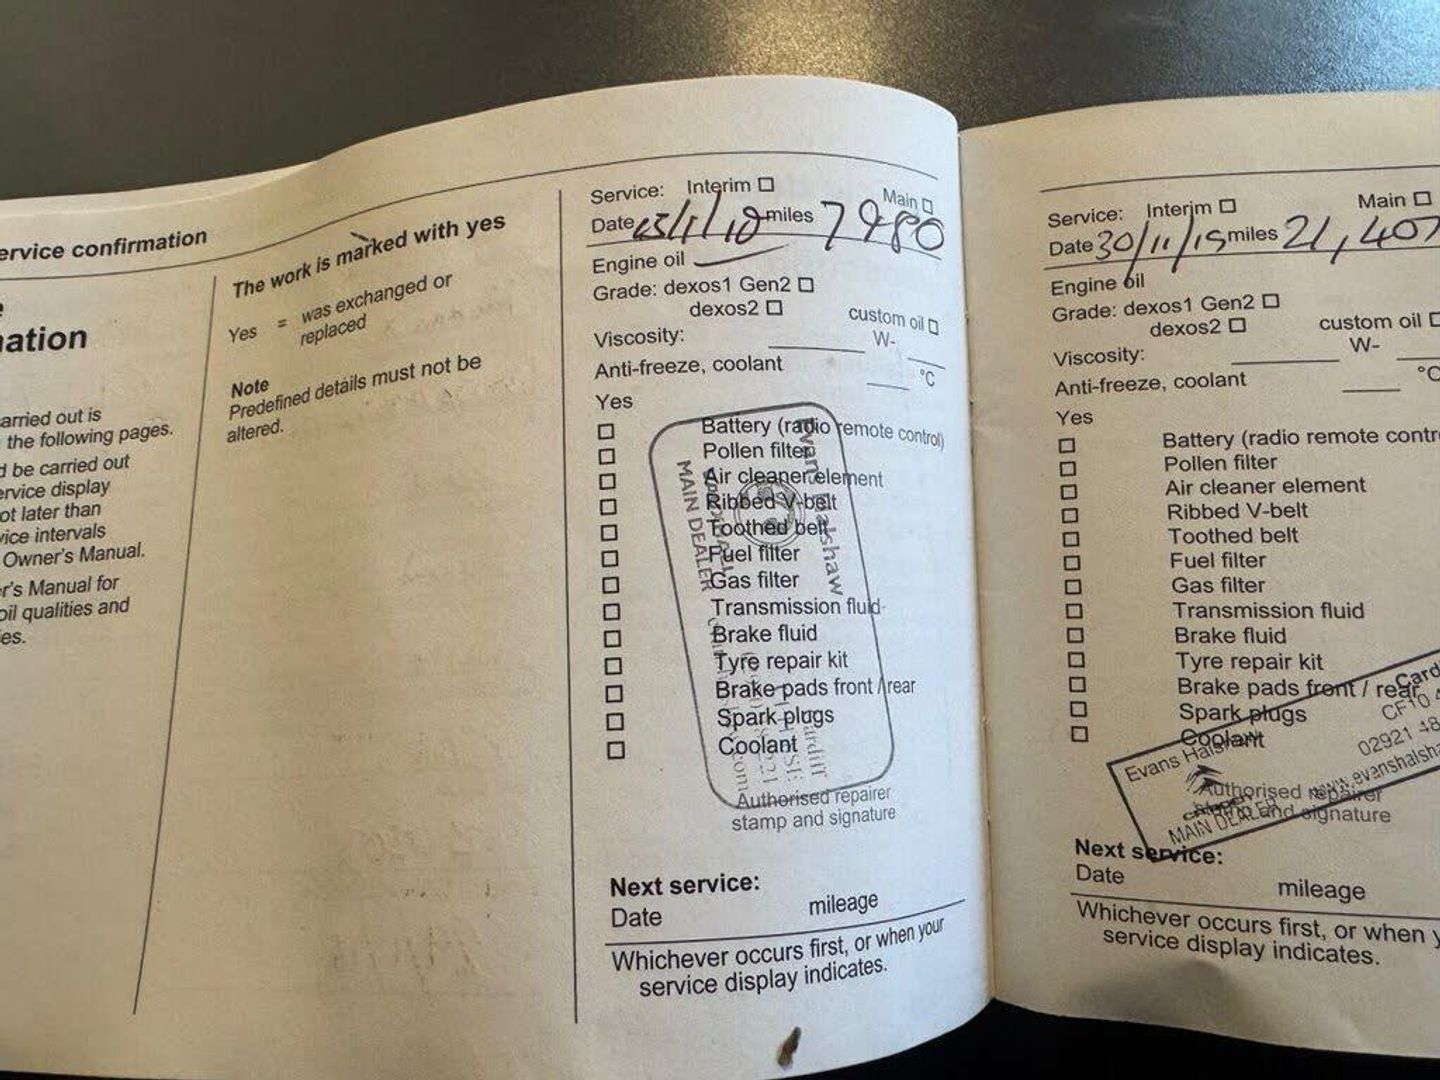 ervice confirmation
e
ation
arried out is
the following pages.
d be carried out
ervice display
ot later than
vice intervals
Owner's Manual.
r's Manual for
oil qualities and
es.
The work is marked with yes
Yes = was exchanged or
replaced
Note
Predefined details must not be
altered.
Service: Interim Main
Date miles 7980
Engine oil
Grade: dexos1 Gen2
dexos2 custom oil
Viscosity: W-
Anti-freeze, coolant °C
Yes
Battery (radio remote control)
Pollen filter
Air cleaner element
Ribbed V-belt
Toothed belt
Fuel filter
Gas filter
Transmission fluid
Brake fluid
Tyre repair kit
Brake pads front / rear
Spark plugs
Coolant
Evans Halshaw
MAIN DEALER
Cardiff
Authorised repairer
stamp and signature
Next service:
Date mileage
Whichever occurs first, or when your
service display indicates.
Service: Interim Main
Date 30/11/19 miles 21,407
Engine oil
Grade: dexos1 Gen2
dexos2 custom oil
Viscosity: W-
Anti-freeze, coolant °C
Yes
Battery (radio remote contro
Pollen filter
Air cleaner element
Ribbed V-belt
Toothed belt
Fuel filter
Gas filter
Transmission fluid
Brake fluid
Tyre repair kit
Brake pads front / rear
Spark plugs
Coolant
Evans Halshaw
Card
CF10 4
02921 48
www.evanshalsha
MAIN DEALER
Authorised repairer
stamp and signature
Next service:
Date mileage
Whichever occurs first, or when y
service display indicates.